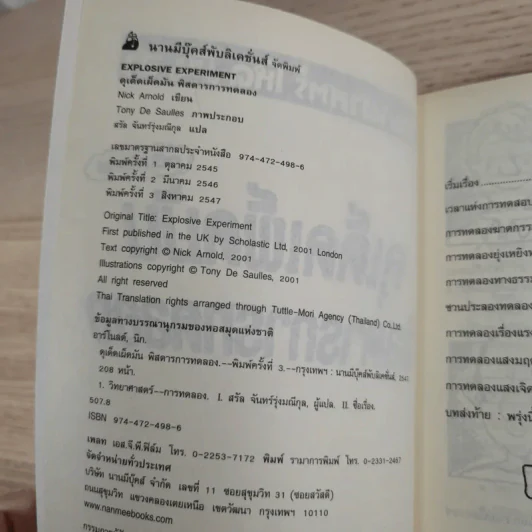 นานมีบุ๊คส์พับลิเคชั่นส์ จัดพิมพ์
EXPLOSIVE EXPERIMENT
ดุเด็ดเผ็ดมัน พิสดารการทดลอง
Nick Arnold เขียน
Tony De Saulles ภาพประกอบ
สรัล จันทร์รุ่งมณีกุล แปล
เลขมาตรฐานสากลประจำหนังสือ 974-472-498-6
พิมพ์ครั้งที่ 1 ตุลาคม 2545
พิมพ์ครั้งที่ 2 มีนาคม 2546
พิมพ์ครั้งที่ 3 สิงหาคม 2547
Original Title: Explosive Experiment
First published in the UK by Scholastic Ltd, 2001 London
Text copyright © Nick Arnold, 2001
Illustrations copyright © Tony De Saulles, 2001
All right reserved
Thai Translation rights arranged through Tuttle-Mori Agency (Thailand) Co.,Ltd.
ข้อมูลทางบรรณานุกรมของหอสมุดแห่งชาติ
อาร์โนลด์, นิก.
ดุเด็ดเผ็ดมัน พิสดารการทดลอง.--พิมพ์ครั้งที่ 3.--กรุงเทพฯ : นานมีบุ๊คส์พับลิเคชั่นส์, 2547
208 หน้า.
1. วิทยาศาสตร์--การทดลอง. I. สรัล จันทร์รุ่งมณีกุล, ผู้แปล. II. ชื่อเรื่อง.
507.8
ISBN 974-472-498-6
เพลท เอส.จี.พี.ฟิล์ม โทร. 0-2253-7172 พิมพ์ รามาการพิมพ์ โทร. 0-2331-2467
จัดจำหน่ายทั่วประเทศ
บริษัท นานมีบุ๊คส์ จำกัด เลขที่ 11 ซอยสุขุมวิท 31 (ซอยสวัสดี)
ถนนสุขุมวิท แขวงคลองเตยเหนือ เขตวัฒนา กรุงเทพฯ 10110
www.nanmeebooks.com
เริ่มเรื่อง
เวลาแห่งการทดสอบ
การทดลองฆาตกรร
การทดลองยุ่งเหยิง
การทดลองทางธรร
ชานประลองทดลอง
การทดลองเรื่องแรง
การทดลองแสงมฤ
การทดลองแสงเจิด
บทส่งท้าย : พรุ่งนี้